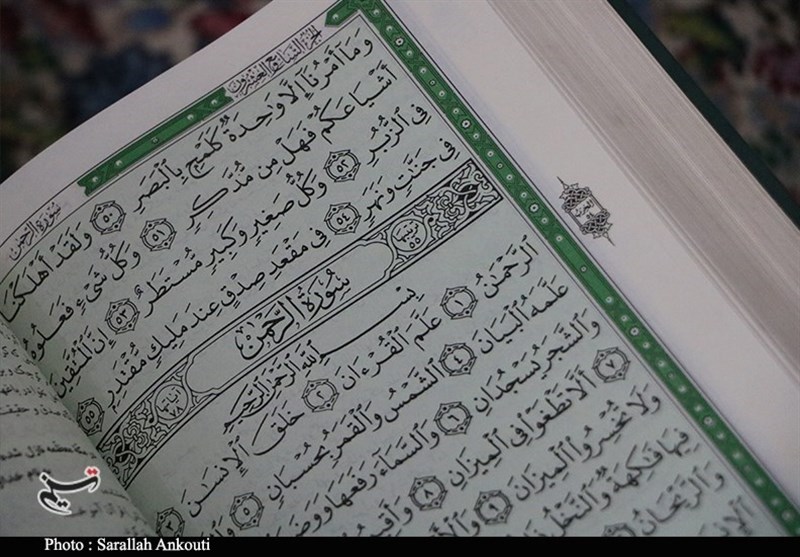 الجزء السابع والعشرون
سورة الرحمن
وَمَآ أَمْرُنَآ إِلَّا وَٰحِدَةٌ كَلَمْحٍۭ بِٱلْبَصَرِ ٥٠ وَلَقَدْ أَهْلَكْنَآ
أَشْيَاعَكُمْ فَهَلْ مِن مُّدَّكِرٍ ٥١ وَكُلُّ شَىْءٍ فَعَلُوهُ
فِى ٱلزُّبُرِ ٥٢ وَكُلُّ صَغِيرٍ وَكَبِيرٍ مُّسْتَطَرٌ ٥٣ إِنَّ ٱلْمُتَّقِينَ
فِى جَنَّٰتٍ وَنَهَرٍ ٥٤ فِى مَقْعَدِ صِدْقٍ عِندَ مَلِيكٍ مُّقْتَدِرٍۭ ٥٥
سُورَةُ الرَّحْمٰن
بِسْمِ ٱللَّهِ ٱلرَّحْمَٰنِ ٱلرَّحِيمِ
ٱلرَّحْمَٰنُ ١ عَلَّمَ ٱلْقُرْءَانَ ٢ خَلَقَ ٱلْإِنسَٰنَ ٣
عَلَّمَهُ ٱلْبَيَانَ ٤ ٱلشَّمْسُ وَٱلْقَمَرُ بِحُسْبَانٍ ٥
وَٱلشَّجَرُ يَسْجُدَانِ ٦ وَٱلسَّمَآءَ رَفَعَهَا
٧ أَلَّا تَطْغَوْا۟ فِى ٱلْمِيزَانِ ٨
وَلَا تُخْسِرُوا۟ ٱلْمِيزَانَ ٩
فِيهَا فَٰكِهَةٌ وَٱلنَّخْلُ
وَٱلرَّيْحَانُ
تسنیم
Photo : Sarallah Ankouti